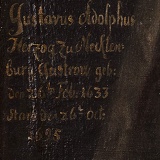 Gustavus Adolphus.
Herzog zu Mecklen
burg Güstrow geb:
den 26 Feb. 1633
Starb den 26t Oct.
1695